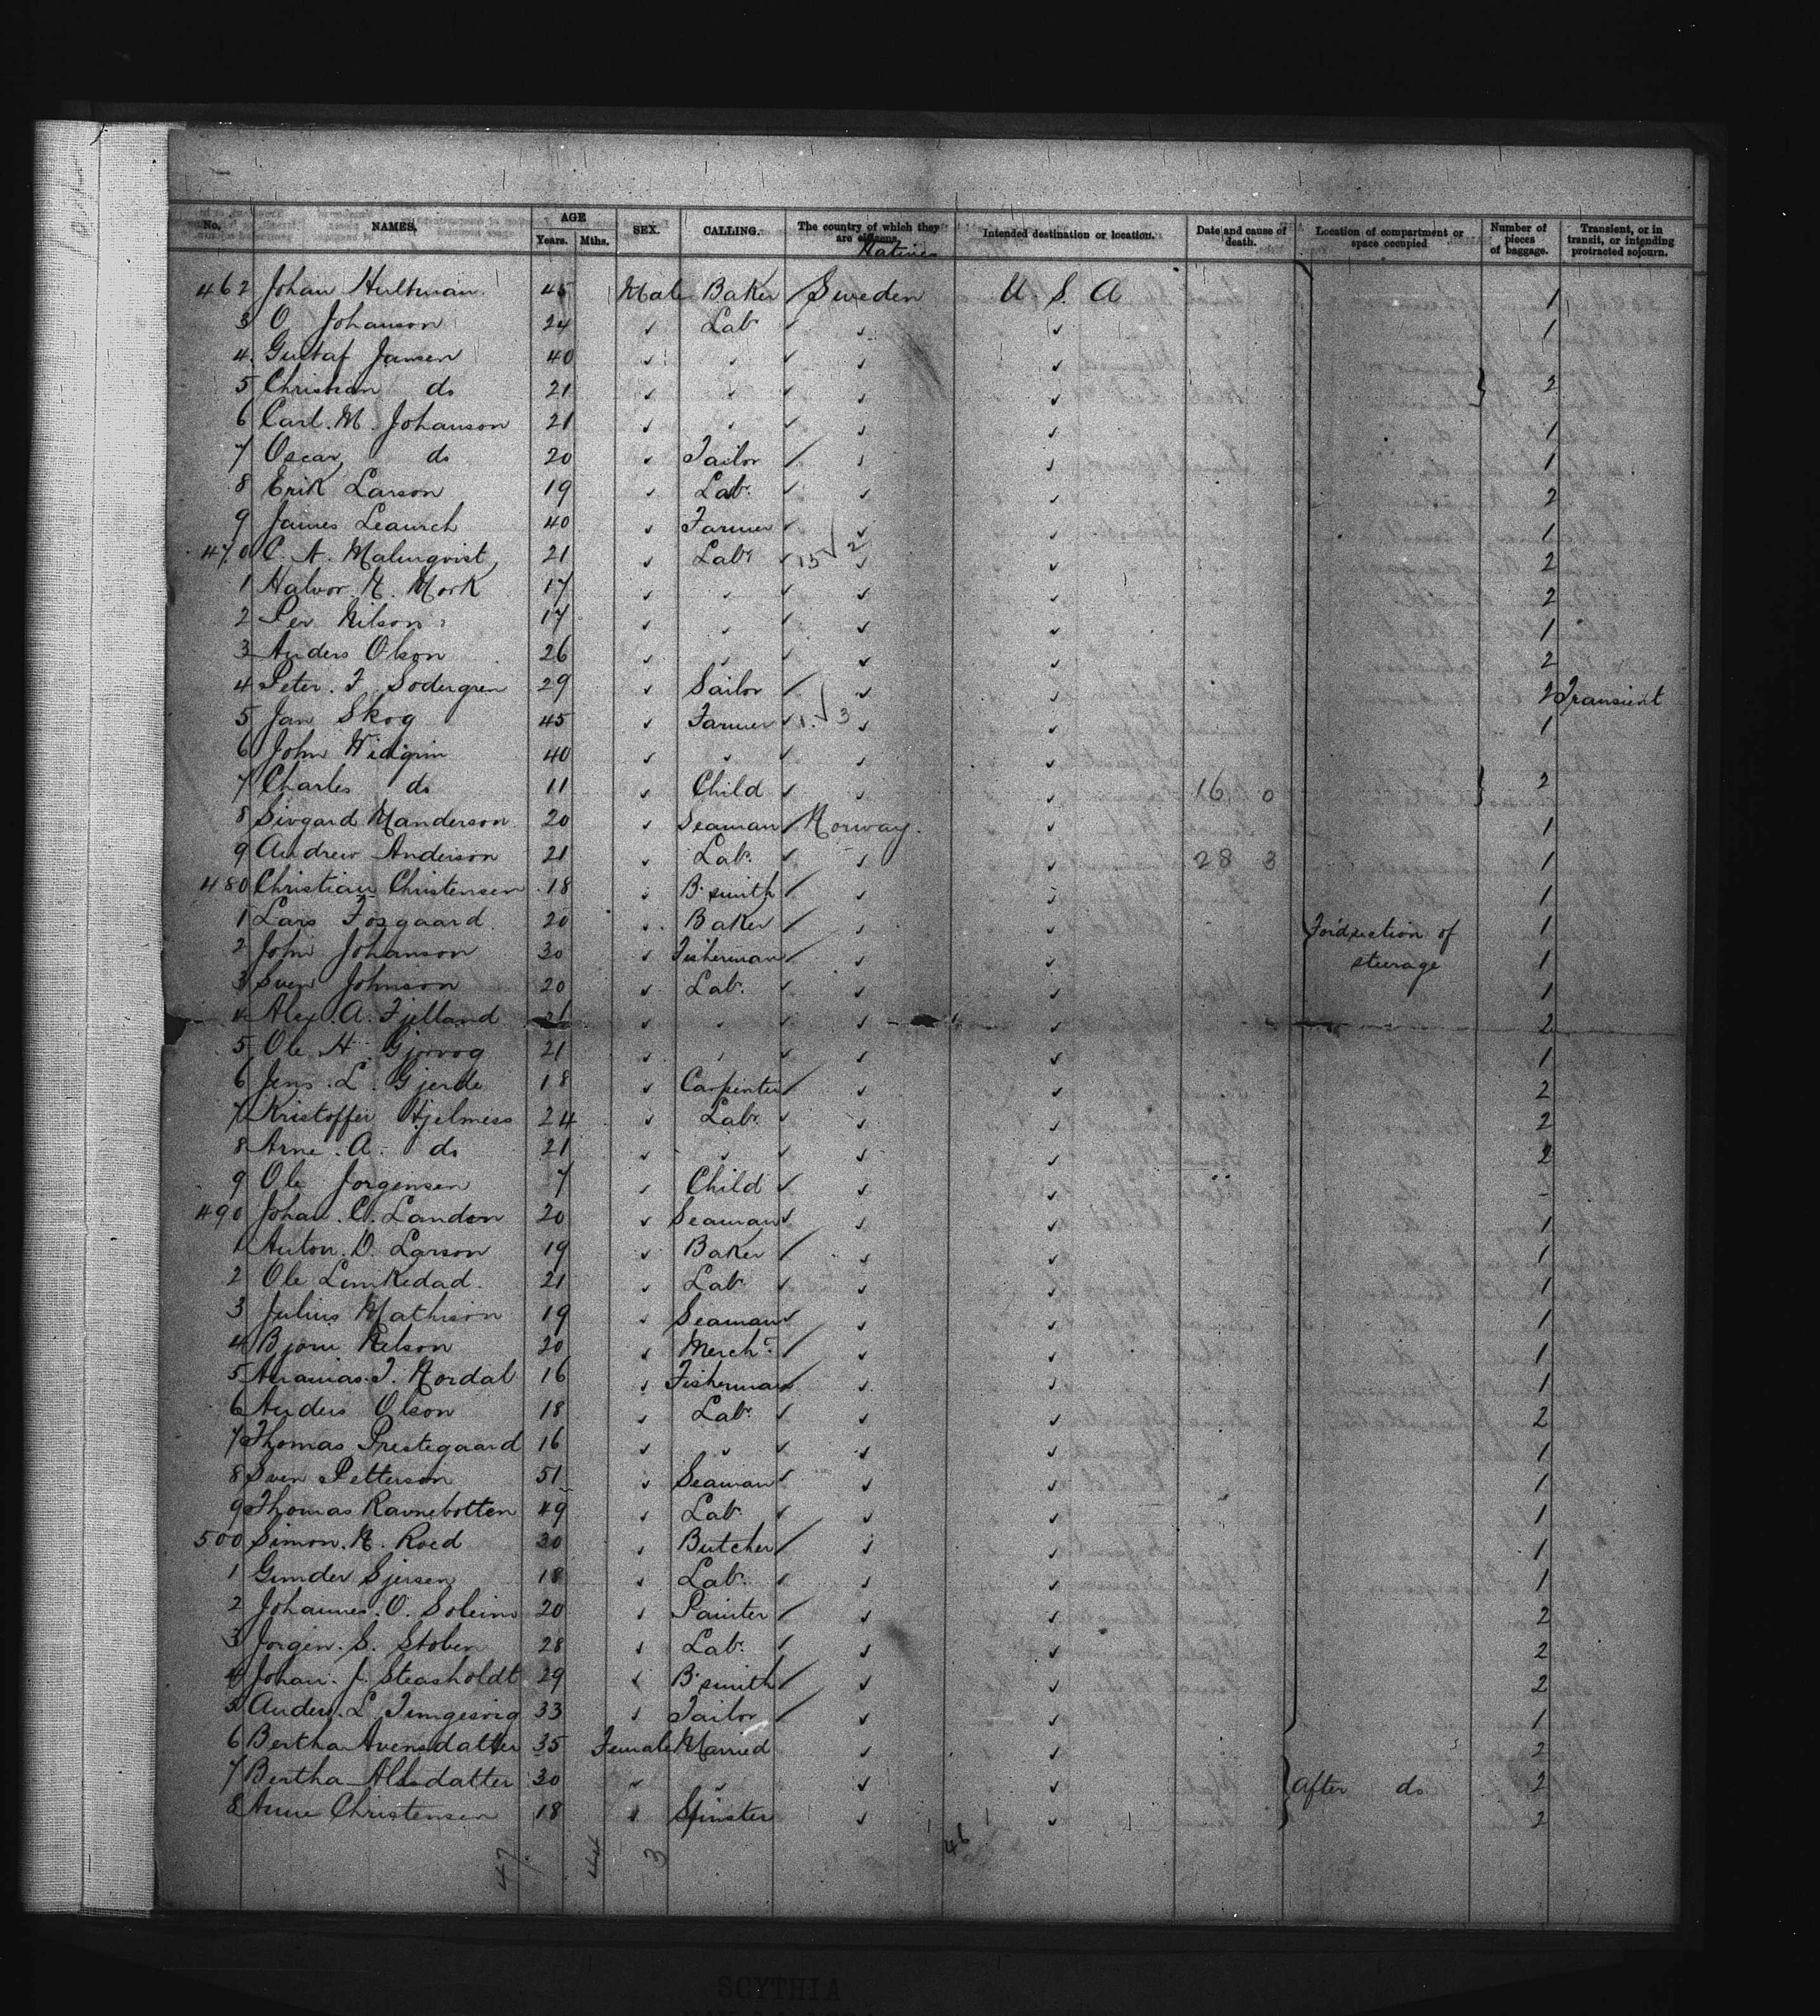 No. NAMES. AGE Years. Mths. SEX. CALLING. The country of which they are citizens. Natives Intended destination or location. Date and cause of death. Location of compartment or space occupied Number of pieces of baggage. Transient, or in transit, or intending protracted sojourn.
462 Johan Hultman 45 Male Baker Sweden U S. A 1
3 O Johanson 24 ✓ Lab ✓ ✓ 1
4 Gustaf Jansen 40 ✓ ✓ ✓ ✓
5 Christian do 21 ✓ ✓ ✓ ✓ } 2
6 Carl. M. Johanson 21 ✓ ✓ ✓ ✓ 1
7 Oscar do 20 ✓ Tailor ✓ ✓ 1
8 Erik Larson 19 ✓ Labr ✓ ✓ 2
9 James Leaurch 40 ✓ Farmer ✓ ✓ 1
470 C. A. Malmqvist 21 ✓ Labr 15 ✓ 2 ✓ ✓ 2
1 Halvor. H. Mork 17 ✓ ✓ ✓ ✓ 2
2 Per Nilson 17 ✓ ✓ ✓ ✓ 1
3 Anders Olson 26 ✓ ✓ ✓ ✓ 2
4 Peter. F. Sodergren 29 ✓ Sailor ✓ ✓ 2 Transient
5 Jan Skog 45 ✓ Farmer 1. ✓ 3 ✓ ✓ 1
6 John Widgrin 40 ✓ ✓ ✓ ✓
7 Charles do 11 ✓ Child ✓ ✓ 16 0 } 2
8 Sivgard Manderson 20 ✓ Seaman Norway. ✓ 1
9 Andrew Anderson 21 ✓ Lab. ✓ ✓ 28 3 1
480 Christian Christensen 18 ✓ B. smith ✓ ✓ 1
1 Lars Fosgaard 20 ✓ Baker ✓ ✓ For'd section of 1
2 John Johanson 30 ✓ Fisherman ✓ ✓ steerage 1
3 Sven Johnson 20 ✓ Lab. ✓ ✓ 1
4 Alex. A. Fjelland 21 ✓ ✓ ✓ ✓ 2
5 Ole H. Gjorvog 21 ✓ ✓ ✓ ✓ 1
6 Jens. L. Gjerde 18 ✓ Carpenter ✓ ✓ 2
7 Kristoffer Hjelmess 24 ✓ Labr ✓ ✓ 2
8 Arne. A. do 21 ✓ ✓ ✓ ✓ 2
9 Ole Jorgensen 7 ✓ Child ✓ ✓ -
490 Johan. C. Landon 20 ✓ Seaman ✓ ✓ 1
1 Anton. O. Larson 19 ✓ Baker ✓ ✓ 1
2 Ole Linnkedad 21 ✓ Lab ✓ ✓ 1
3 Julius Mathison 19 ✓ Seaman ✓ ✓ 1
4 Bjorn Nelson 20 ✓ Mercht ✓ ✓ 1
5 Ananias. T. Nordal 16 ✓ Fisherman ✓ ✓ 1
6 Anders Olson 18 ✓ Labr ✓ ✓ 2
7 Thomas Prestegaard 16 ✓ ✓ ✓ ✓ 1
8 Sven Petterson 51 ✓ Seaman ✓ ✓ 1
9 Thomas Ravnebotten 49 ✓ Lab ✓ ✓ 1
500 Simon. N. Roed 30 ✓ Butcher ✓ ✓ 1
1 Gunder Sjersen 18 ✓ Lab. ✓ ✓ 1
2 Johannes. O. Soleim 20 ✓ Painter ✓ ✓ 2
3 Jorgen. S. Stoben 28 ✓ Lab. ✓ ✓ 2
4 Johan. J. Steasholdt 29 ✓ B. smith ✓ ✓ 2
5 Anders. L. Timgesvig 33 ✓ Tailor ✓ ✓ 1
6 Bertha Avensdatter 35 Female Married ✓ ✓ 2
7 Bertha Alsdatter 30 ✓ ✓ ✓ ✓ } after do 2
8 Anne Christensen 18 ✓ Spinster ✓ ✓ 2
47 44 3 46
SCYTHIA